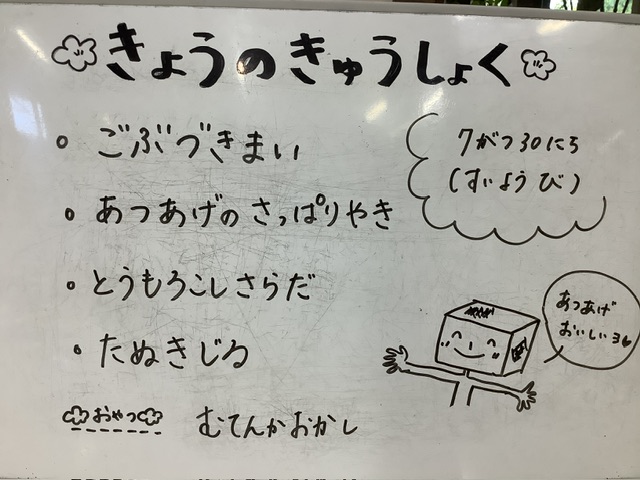 きょうのきゅうしょく
ごぶづきまい
7がつ30にち
(すいようび)
あつあげのさっぱりやき
とうもろこしさらだ
たぬきじる
あつあげ
おいしいヨ
おやつ
むてんかおかし